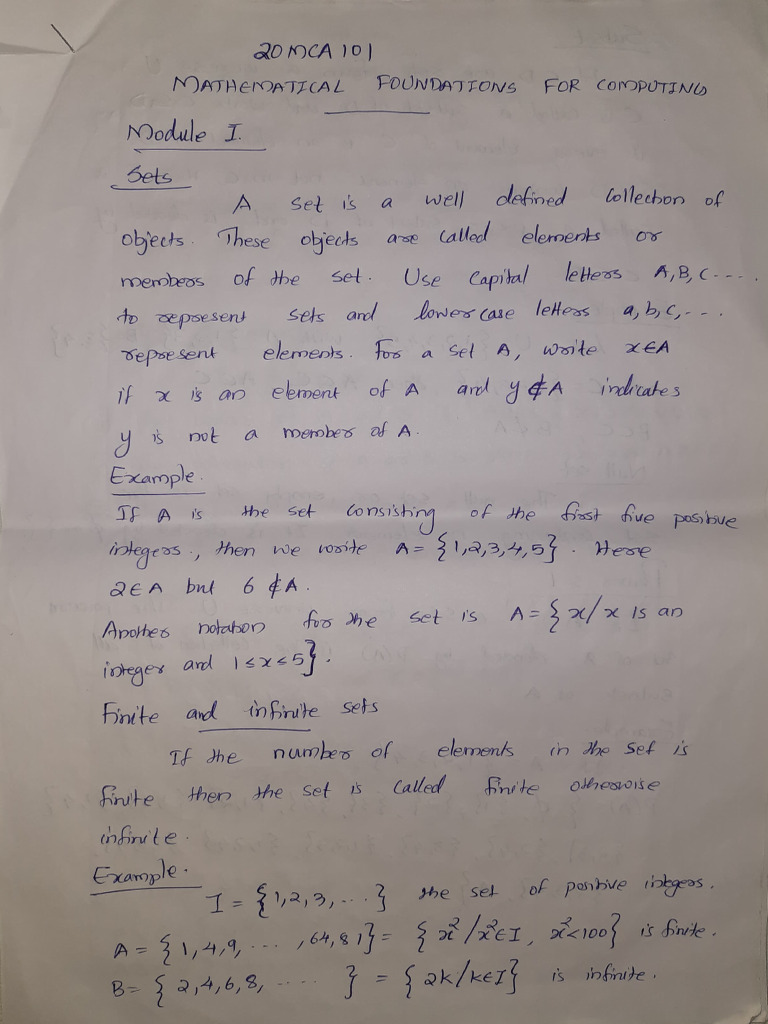 20MCA101
MATHEMATICAL FOUNDATIONS FOR COMPUTING
Module I.
Sets
A set is a well defined collection of
objects. These objects are called elements or
members of the set. Use capital letters A,B,C----.
to represent sets and lowercase letters a,b,c,---.
represent elements. For a set A, write x∈A
if x is an element of A and y∉A indicates
y is not a member of A.
Example.
If A is the set consisting of the first five positive
integers., then we write A={1,2,3,4,5}. Here
2∈A but 6∉A.
Another notation for the set is A={x/x is an
integer and 1≤x≤5}.
Finite and infinite sets
If the number of elements in the set is
finite then the set is called finite otherwise
infinite.
Example.
I={1,2,3,...} the set of positive integers.
A={1,4,9,...,64,81}={x²/x²∈I, x²<100} is finite.
B={2,4,6,8,.....}={2k/k∈I} is infinite.